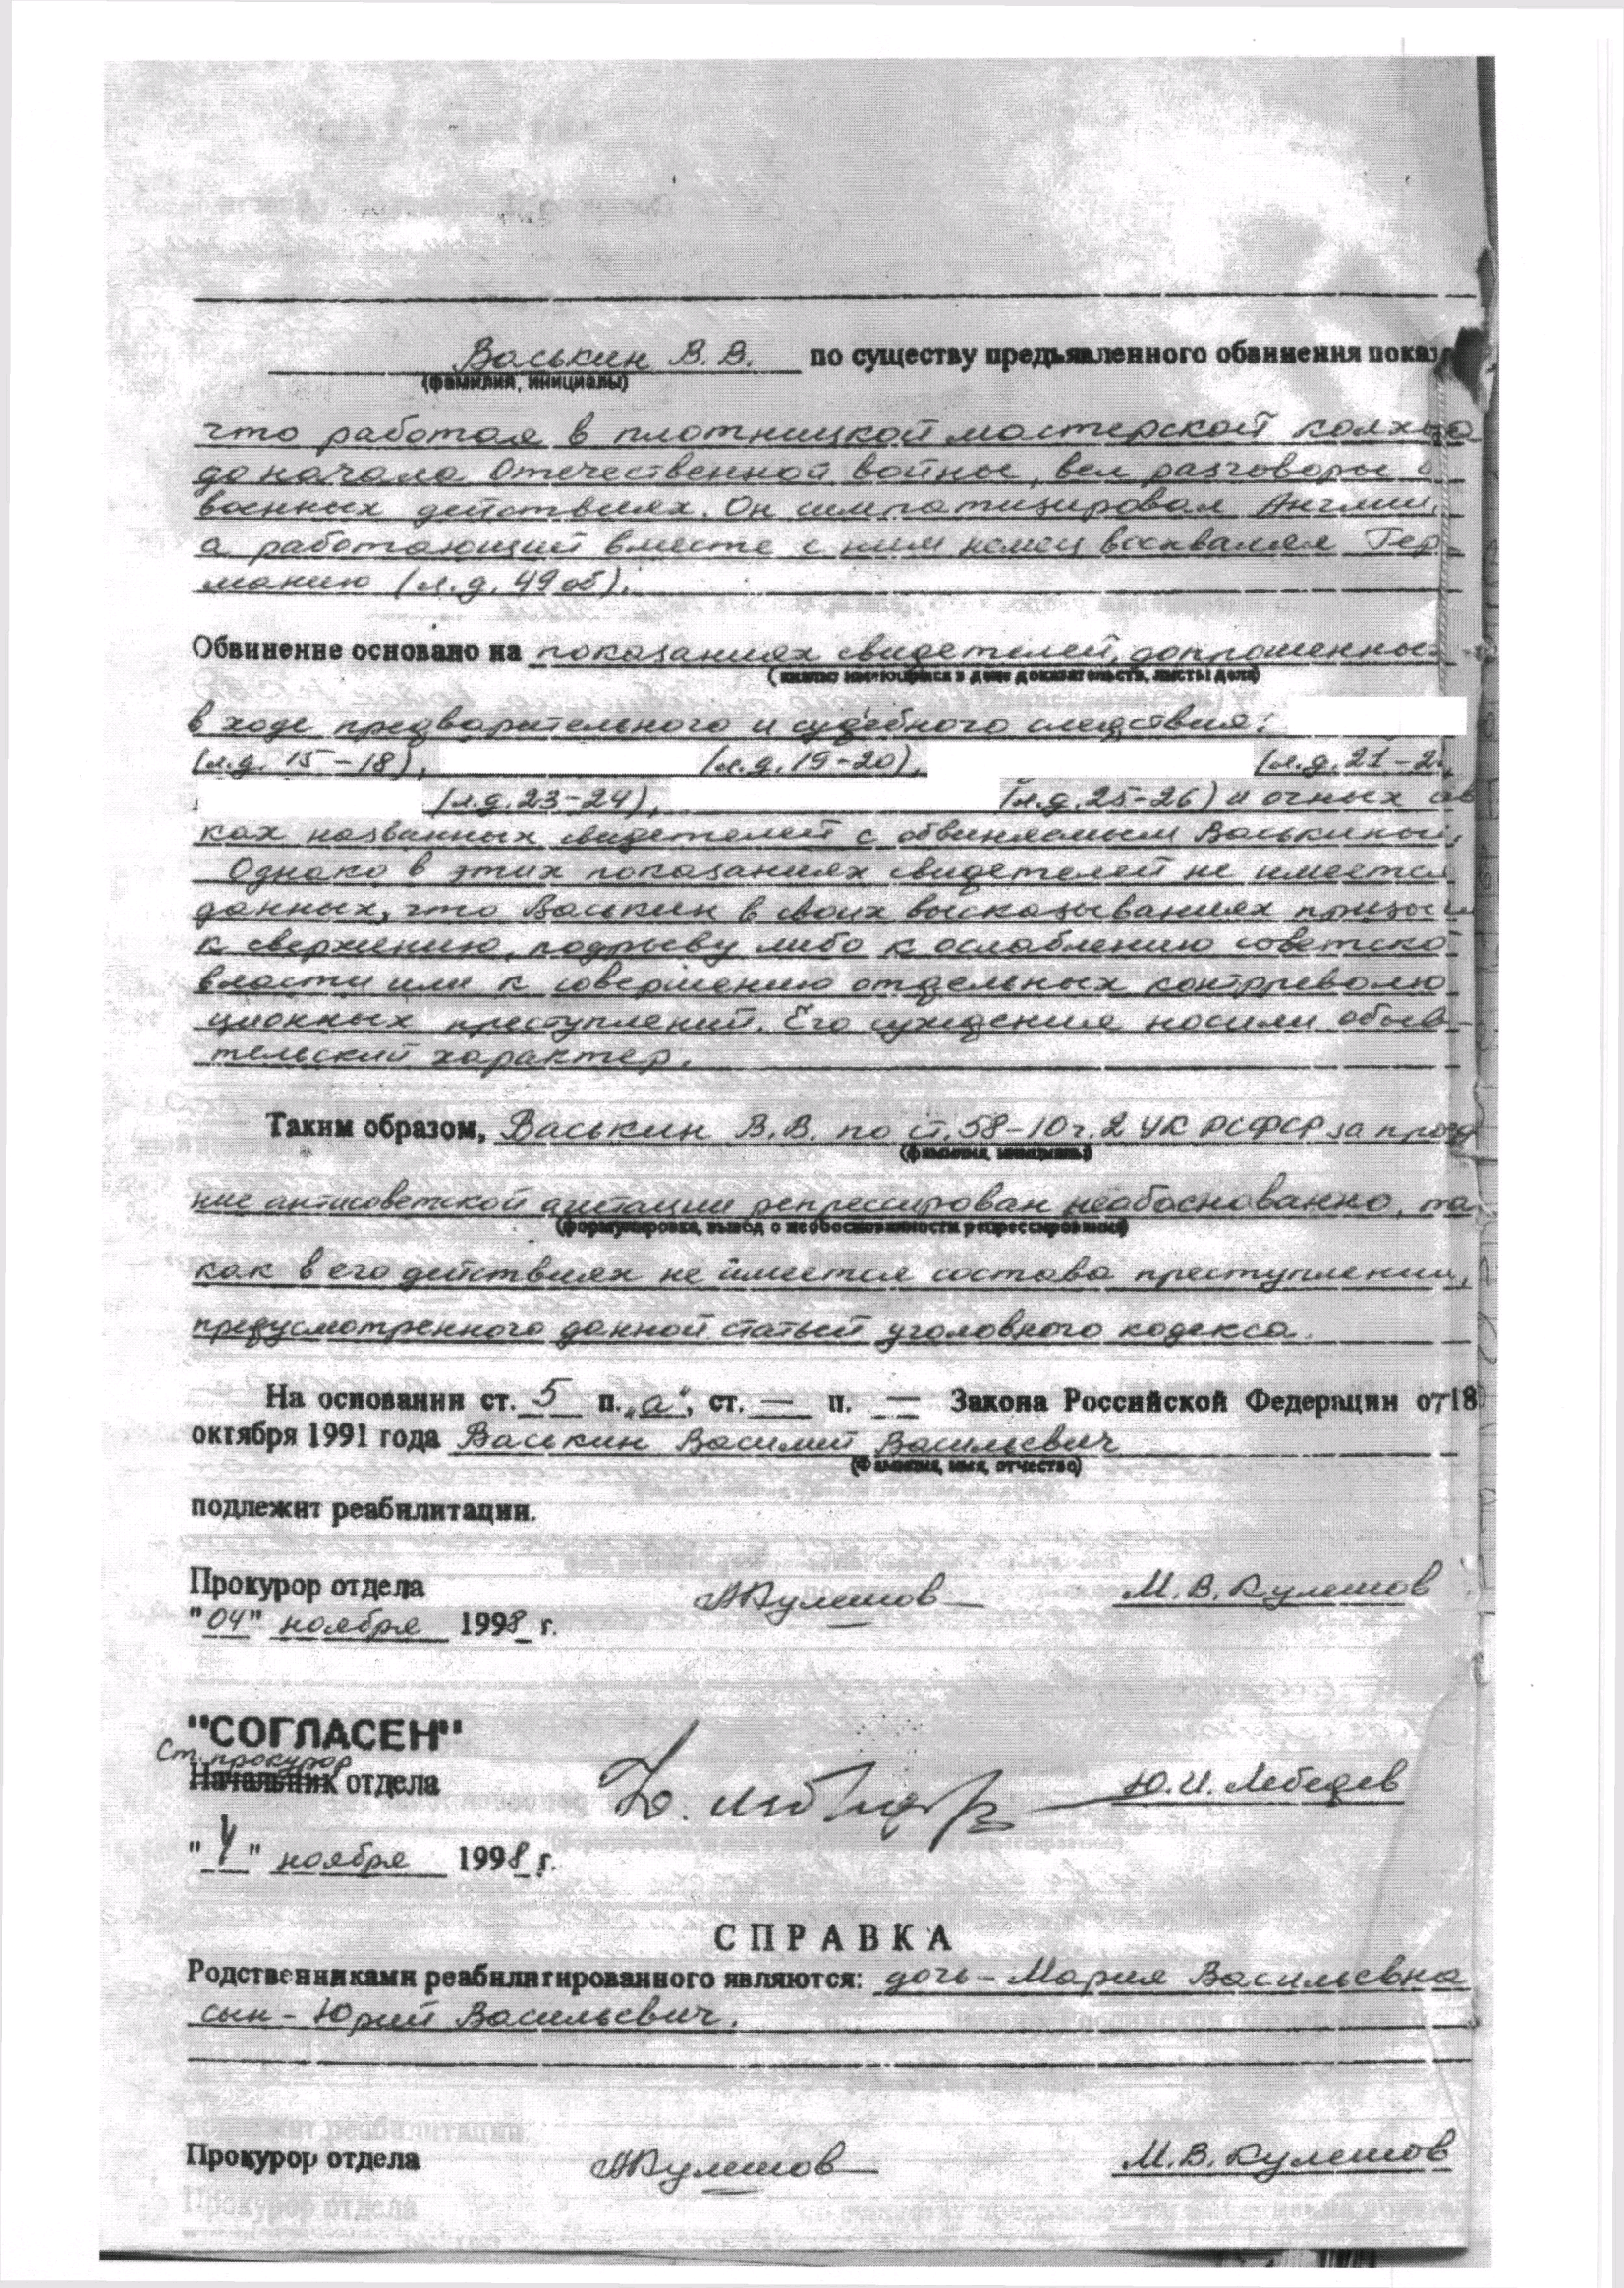 Васькин В. В. по существу предъявленного обвинения показ
(фамилия, инициалы)
что работая в плотницкой мастерской колхоза
до начала Отечественной войны, вел разговоры о
военных действиях. Он симпатизировал Англии,
а работающий вместе с ним немец восхвалял Гер-
манию (л.д. 49об).
Обвинение основано на показаниях свидетелей, допрошенных
(анализ имеющихся в деле доказательств, листы дела)
в ходе предварительного и судебного следствия:
(л.д. 15-18), (л.д. 19-20), (л.д. 21-2
(л.д. 23-24), (л.д. 25-26) и очных
ках названных свидетелей с обвиняемым Васькиным,
Однако в этих показаниях свидетелей не имеется
данных, что Васькин в своих высказываниях призы
к свержению, подрыву либо к ослаблению советско
власти или к совершению отдельных контрреволю
ционных преступлений. Его суждения носили обыва-
тельский характер.
Таким образом, Васькин В.В. по ст. 58-10 ч. 2 УК РСФСР за
(фамилия, инициалы)
ние антисоветской агитации репрессирован необоснованно, та
(формулировка, вывод о необоснованности репрессирования)
как в его действиях не имеется состава преступления,
предусмотренного данной статьей уголовного кодекса.
На основании ст. 5 п. „а", ст. — п. — Закона Российской Федерации от 18
октября 1991 года Васькин Василий Васильевич
(Фамилия, имя, отчество)
подлежит реабилитации.
Прокурор отдела АКулешов М. В. Кулешов
"04" ноября 1998 г.
"СОГЛАСЕН"
Ст. прокурор
Начальник отдела Ю.И. Лебедев
"4" ноября 1998 г.
СПРАВКА
Родственниками реабилитированного являются: дочь - Мария Васильевна
сын - Юрий Васильевич.
Прокурор отдела АКулешов М.В. Кулешов